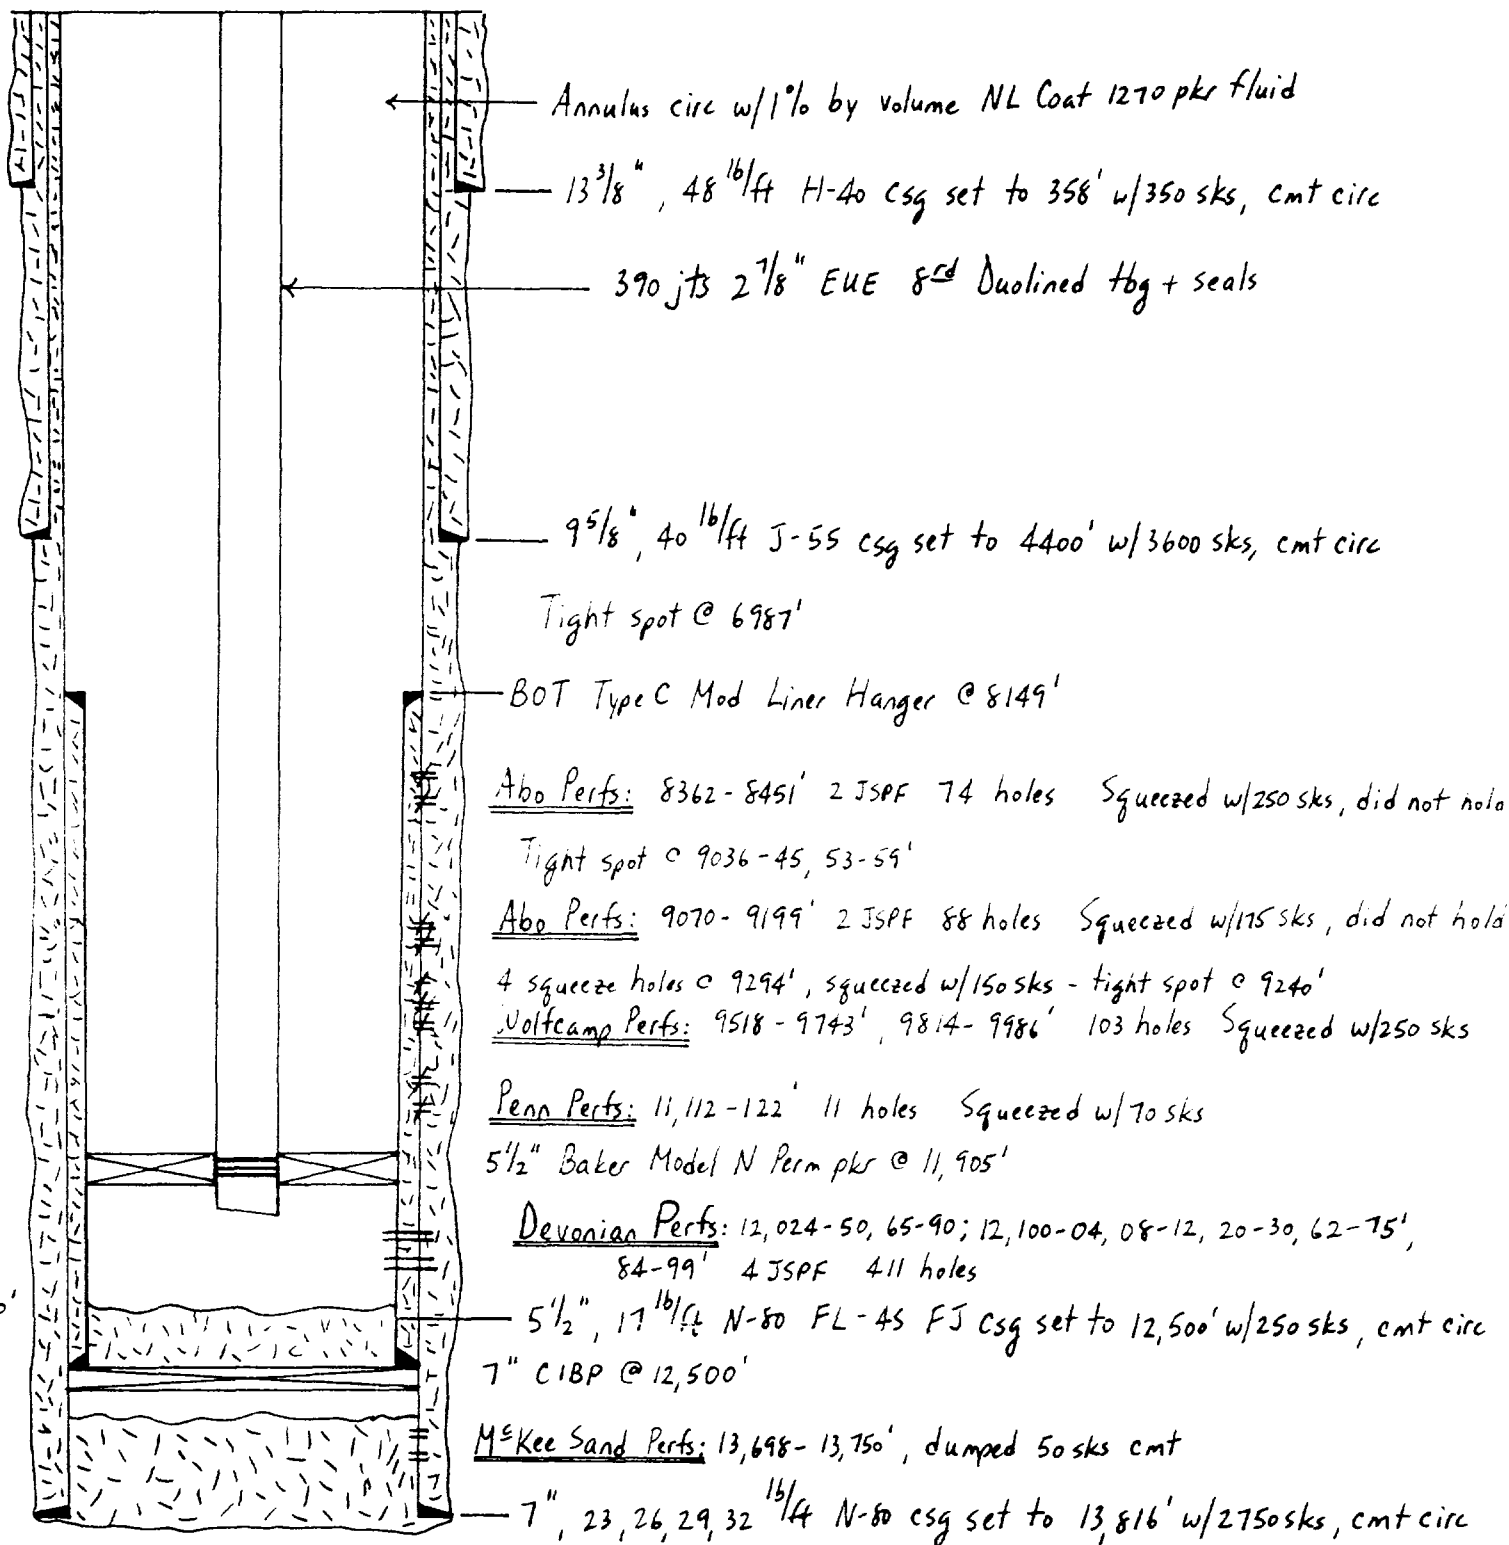 Annulus circ w/1% by volume NL Coat 1270 pkr fluid
13 3/8", 48 lb/ft H-40 csg set to 358' w/350 sks, cmt circ
390 jts 2 7/8" EUE 8rd Duolined tbg + seals
9 5/8", 40 lb/ft J-55 csg set to 4400' w/3600 sks, cmt circ
Tight spot @ 6987'
BOT Type C Mod Liner Hanger @ 8149'
Abo Perfs: 8362-8451' 2 JSPF 74 holes Squeezed w/250 sks, did not hold
Tight spot @ 9036-45, 53-59'
Abo Perfs: 9070-9199' 2 JSPF 88 holes Squeezed w/175 sks, did not hold
4 squeeze holes @ 9294', squeezed w/150 sks - tight spot @ 9240'
Wolfcamp Perfs: 9518-9743', 9814-9986' 103 holes Squeezed w/250 sks
Penn Perfs: 11,112-122' 11 holes Squeezed w/70 sks
5 1/2" Baker Model N Perm pkr @ 11,905'
Devonian Perfs: 12,024-50, 65-90; 12,100-04, 08-12, 20-30, 62-75',
84-99' 4 JSPF 411 holes
5 1/2", 17 lb/ft N-80 FL-4S FJ csg set to 12,500' w/250 sks, cmt circ
7" CIBP @ 12,500'
McKee Sand Perfs: 13,698-13,750', dumped 50 sks cmt
7", 23, 26, 29, 32 lb/ft N-80 csg set to 13,816' w/2750 sks, cmt circ